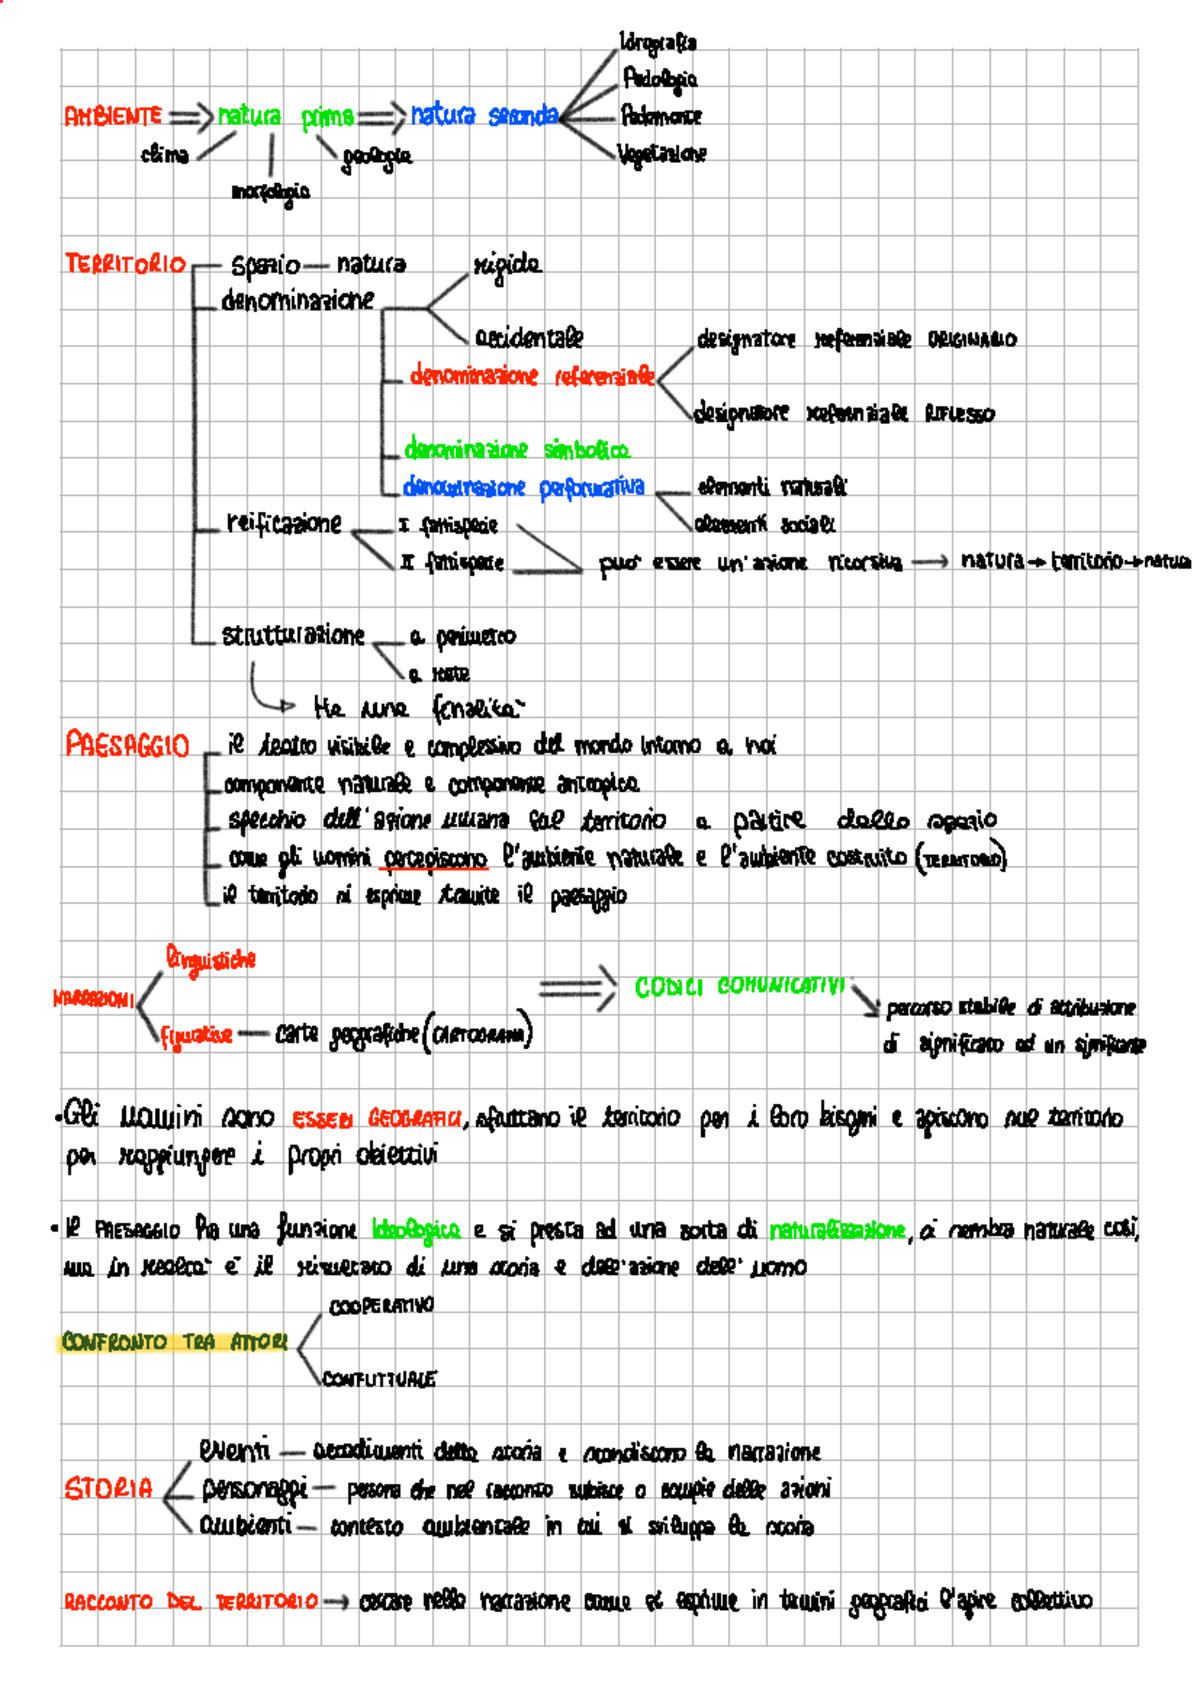 Idrografia
Pedologia
AMBIENTE ⇒ natura prima ⇒ natura seconda
Pedemonte
clima geologia Vegetazione
morfologia
TERRITORIO spazio — natura rigida
denominazione
accidentale designatore referenziale ORIGINARIO
denominazione referenziale
designatore referenziale RIFLESSO
denominazione simbolica
denominazione performativa elementi naturali
reificazione I fattispecie elementi sociali
II fattispecie può essere un'azione ricorsiva → natura → territorio → natura
strutturazione a perimetro
a rete
Ha una finalità
PAESAGGIO il teatro visibile e complessivo del mondo intorno a noi
componente naturale e componente antropica
specchio dell'azione umana sul territorio a partire dallo spazio
come gli uomini percepiscono l'ambiente naturale e l'ambiente costruito (TERRITORIO)
il territorio si esprime tramite il paesaggio
linguistiche
NARRAZIONI ⇒ CODICI COMUNICATIVI
percorso stabile di attribuzione
figurative — carte geografiche (CARTOGRAFIA)
di significato ad un significante
• Gli uomini sono ESSERI GEOGRAFICI, sfruttano il territorio per i loro bisogni e agiscono sul territorio
per raggiungere i propri obiettivi
• Il PAESAGGIO ha una funzione ideologica e si presta ad una sorta di naturalizzazione, ci sembra naturale così,
ma in realtà è il risultato di una storia e dell'azione dell'uomo
COOPERATIVO
CONFRONTO TRA ATTORI
CONFLITTUALE
eventi — accadimenti della storia e scandiscono la narrazione
STORIA personaggi — persona che nel racconto subisce o compie delle azioni
ambienti — contesto ambientale in cui si sviluppa la storia
RACCONTO DEL TERRITORIO → cercare nella narrazione come si esprime in termini geografici l'agire collettivo